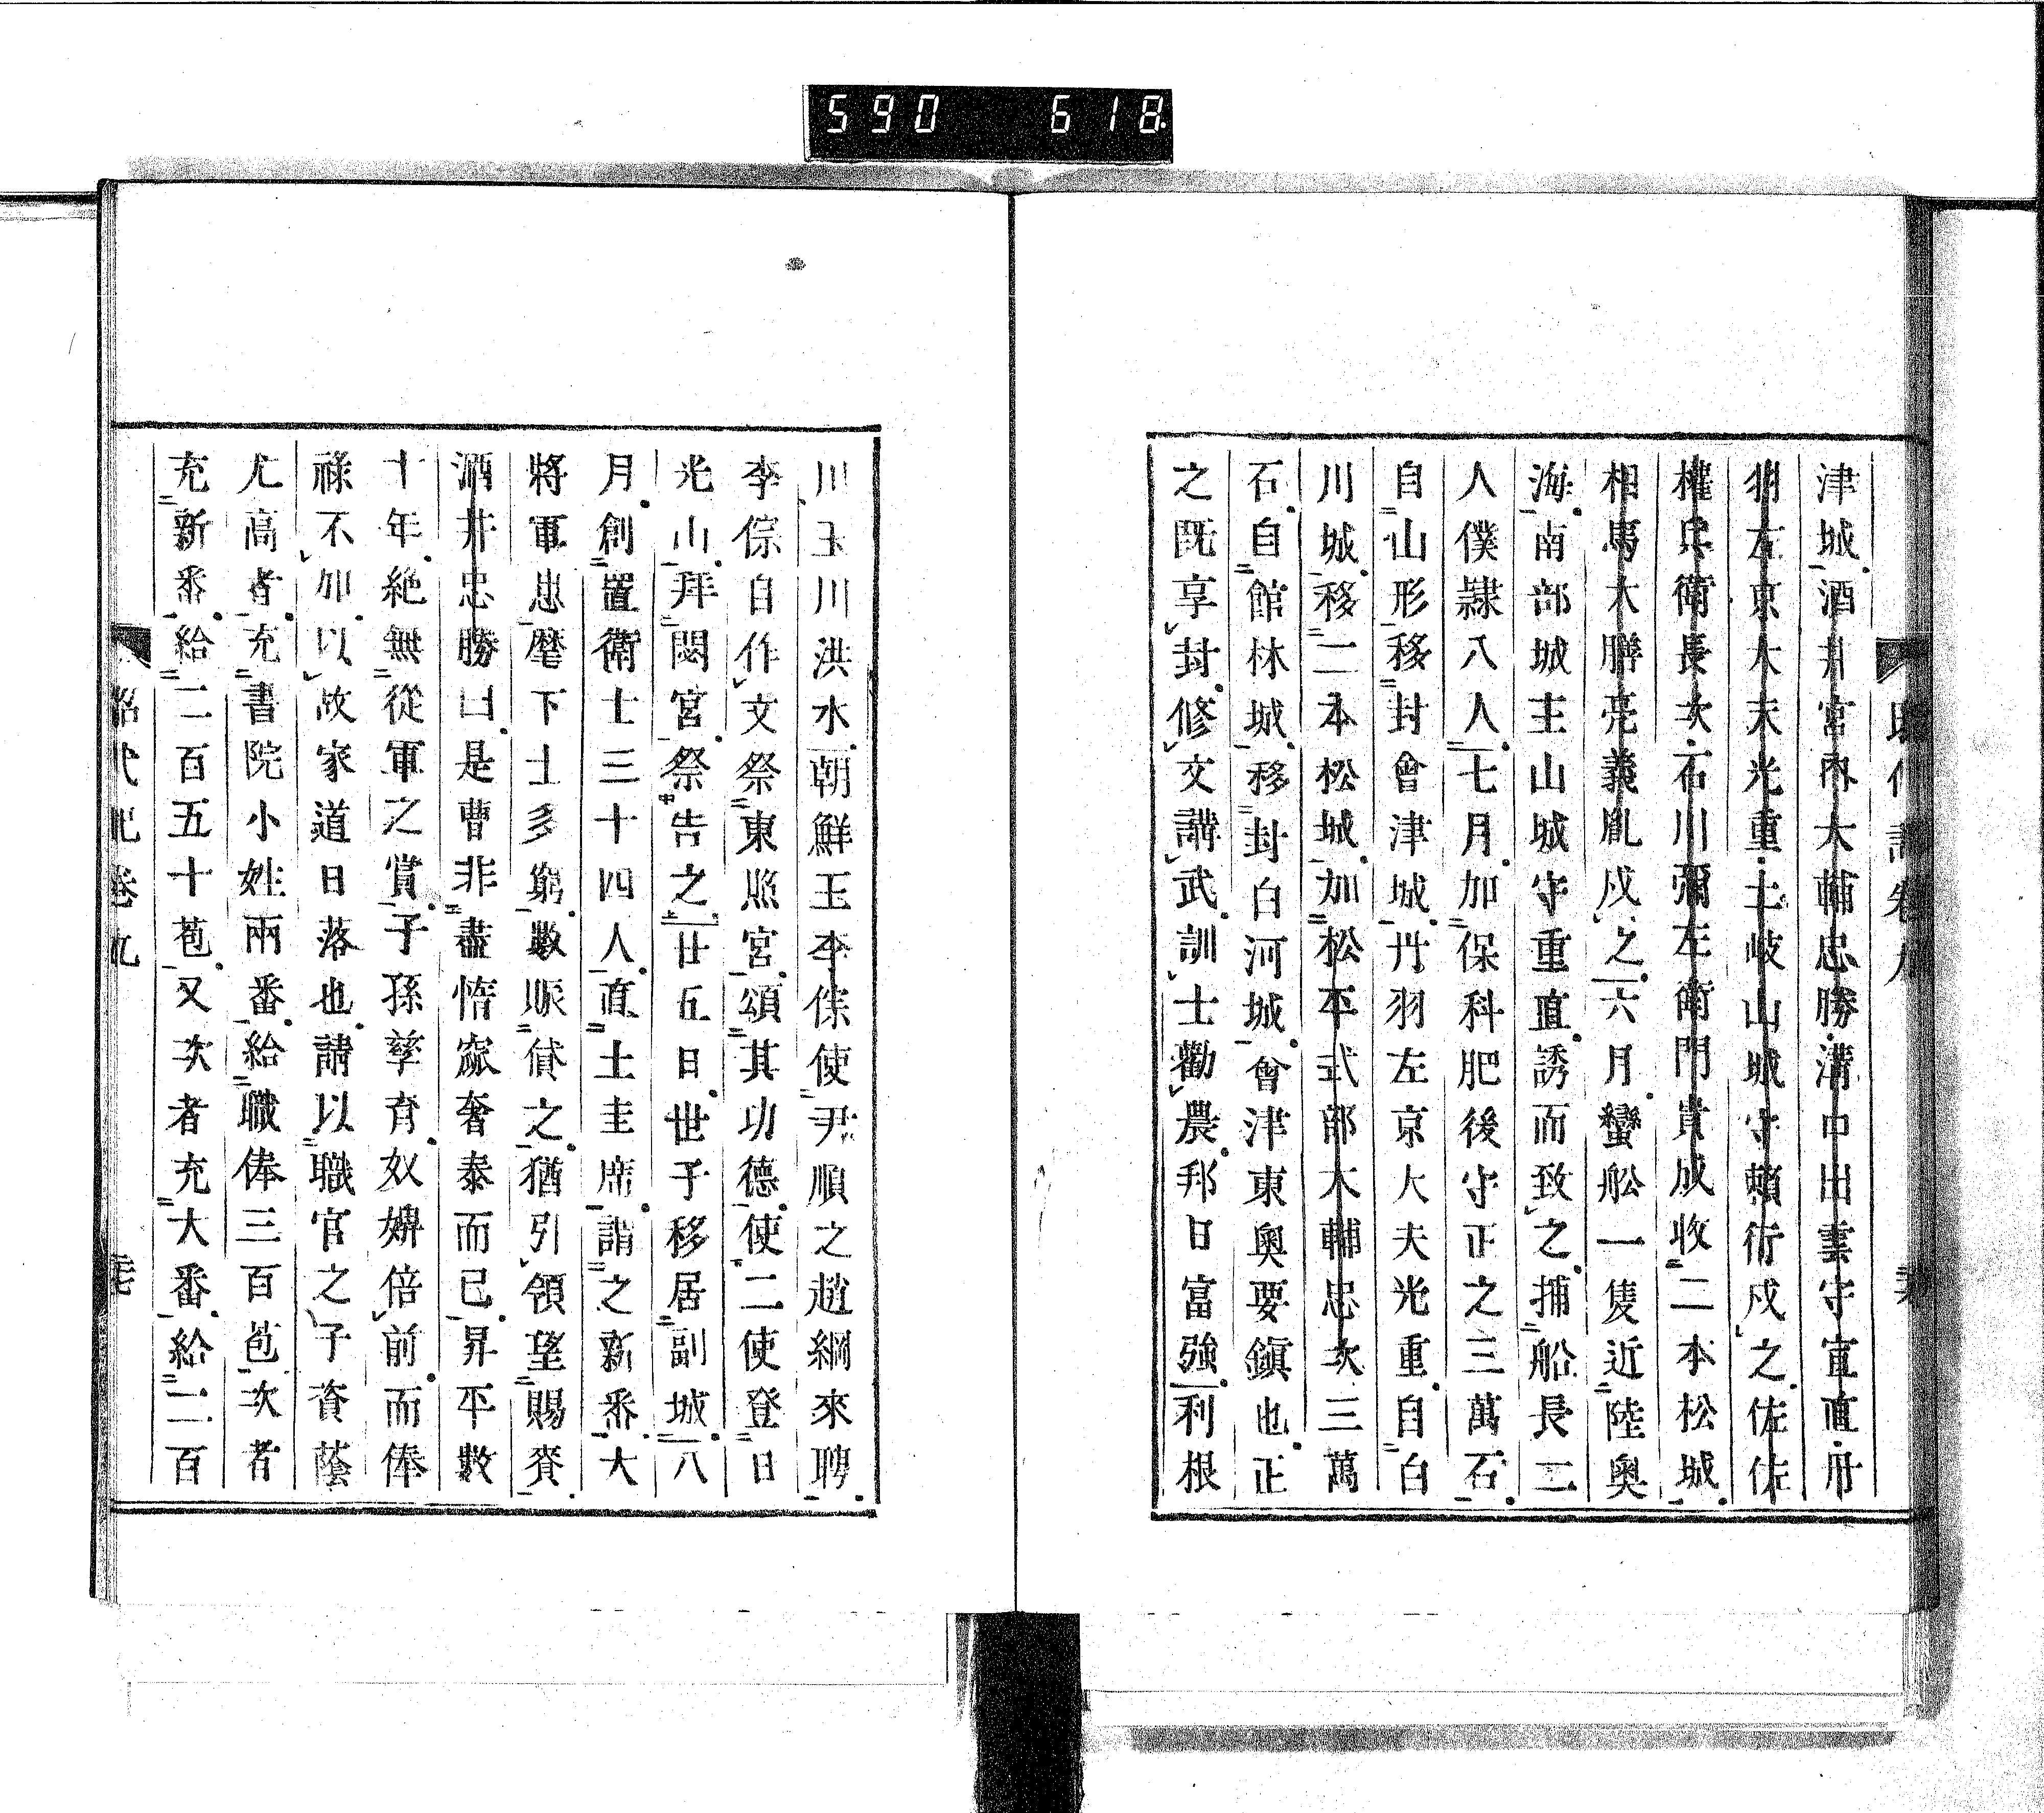 590 618
津城酒井宮内大輔忠勝溝口出雲守宣直丹
羽左京大夫光重土岐山城守賴行戍之佐佐
權兵衛長次石川彌左衛門貴成收二本松城
相馬大膳亮義胤戍之六月蠻舩一隻近陸奧
海南部城主山城守重直誘而致之捕船長二
人僕隷八人七月加保科肥後守正之三萬石
自山形移封會津城丹羽左京大夫光重自白
川城移二本松城加松平式部大輔忠次三萬
石自館林城移封白河城會津東奧要鎭也正
之既享封修文講武訓士勸農邦日富強利根
川玉川洪水朝鮮王李倧使尹順之趙綱來聘
李倧自作文祭東照宮頌其功德使二使登日
光山拜閟宮祭告之廿五日世子移居副城八
月創置衛士三十四人直土圭席謂之新番大
將軍患麾下士多窮數賑貸之猶引領望賜賚
酒井忠勝曰是曹非盡惰窳奢泰而已昇平數
十年絶無從軍之賞子孫孳育奴婢倍前而俸
祿不加以故家道日落也請以職官之子資蔭
尤高者充書院小姓兩番給職俸三百苞次者
充新番給二百五十苞又次者充大番給二百
昭代記卷九